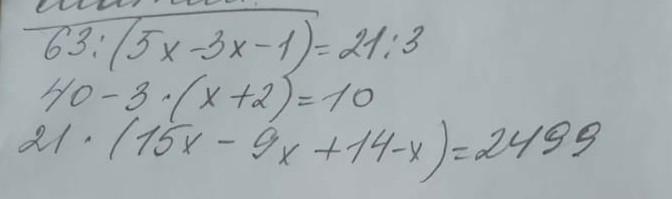 63:(5x-3x-1)=21:3
40-3·(x+2)=10
21·(15x-9x+14-x)=2499